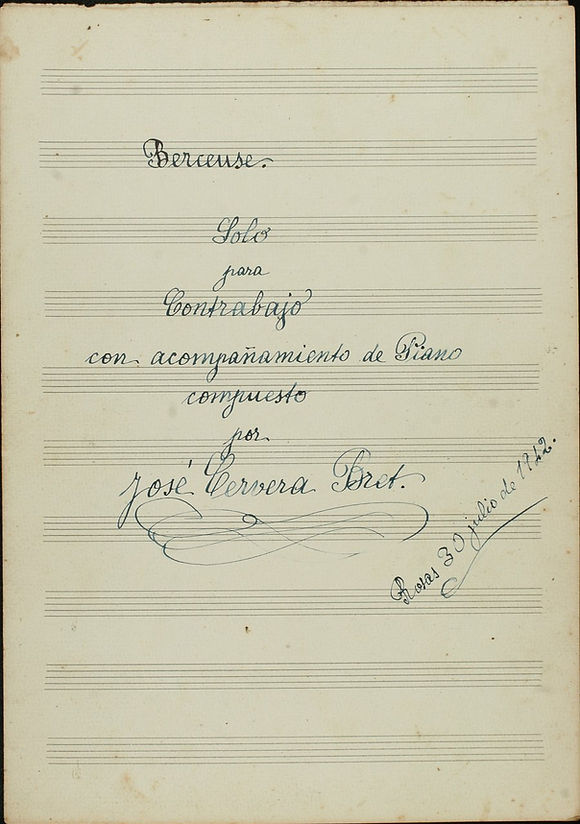 Berceuse.
Solo
para
Contrabajo
con acompañamiento de Piano
compuesto
por
José Cervera Bret.
Rosas 30 julio de 1922.